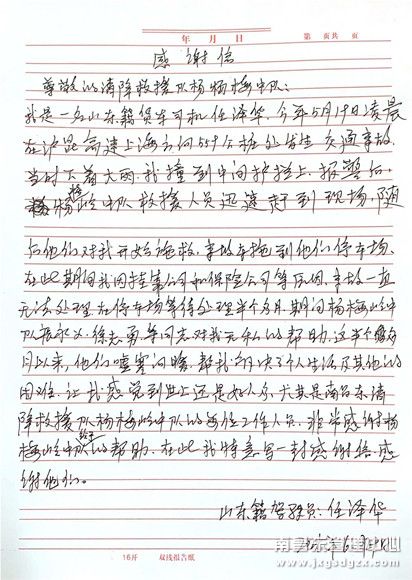 年 月 日 第 页共 页
感谢信
尊敬的清障救援队杨梅岭中队：
我是一名山东籍货车司机任泽华，今年5月19日凌晨
在沪昆高速上海方向559公桩处发生交通事故，
当时下着大雨，我撞到中间护栏上，报警后，
杨梅岭中队救援人员迅速赶到现场，随
后他们对我开始施救，事故车拖到他们停车场。
在此期间我因挂靠公司和保险公司等原因，事故一直
无法处理，在停车场等待处理半个多月，期间杨梅岭中
队 徐志勇等同志对我无私的帮助，这半个多
月以来，他们嘘寒问暖，帮我解决了个人生活及其他的
困难，让我感觉到世上还是好人多，尤其是南昌东清
障救援队杨梅岭中队的每位工作人员，非常感谢杨
梅岭中队给予的帮助，在此我特意写一封感谢信，感
谢他们。
山东籍驾驶员：任泽华
16开 双线报告纸
南昌东管理中心
www.jxgsdgzx.com